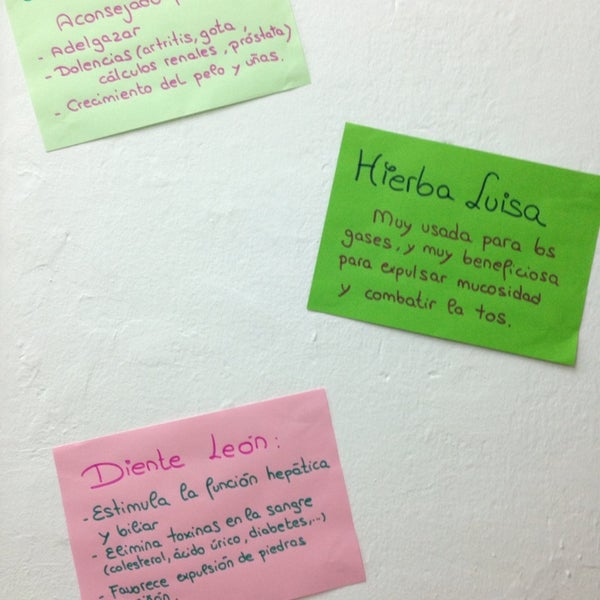 Aconsejado
- Adelgazar
- Dolencias (artritis, gota,
cálculos renales, próstata)
- Crecimiento del pelo y uñas.
Hierba Luisa
Muy usada para los
gases, y muy beneficiosa
para expulsar mucosidad
y combatir la tos.
Diente León:
- Estimula la función hepática
y biliar
- Elimina toxinas en la sangre
(colesterol, ácido úrico, diabetes,...)
- Favorece expulsión de piedras